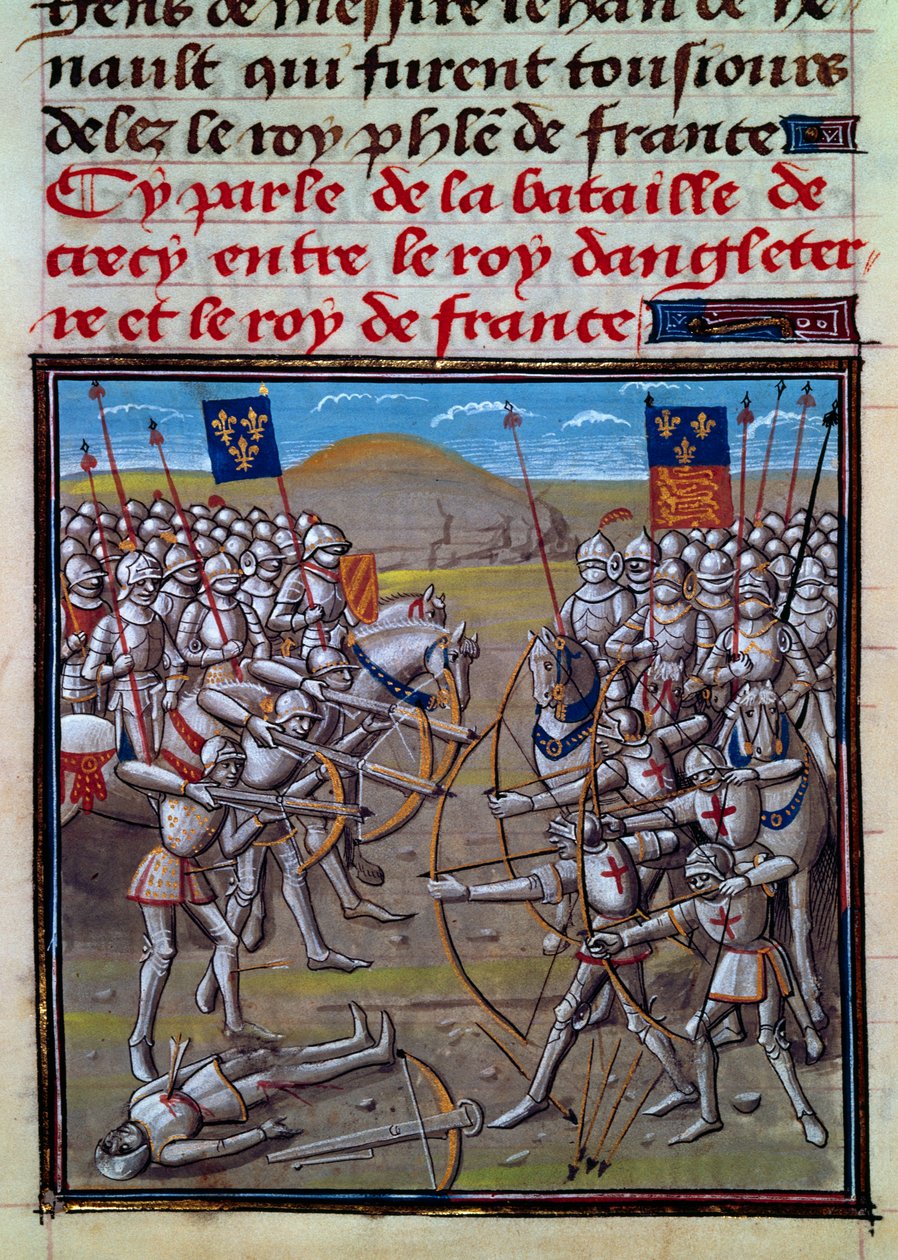 gens de messire iehan de he
nault qui furent tousiours
delez le roy phl̃e de france
Cy parle de la bataille de
crecy entre le roy dangleter
re et le roy de france